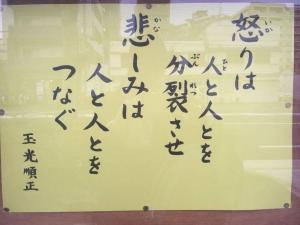 怒りは
人と人とを
分裂させ
悲しみは
人と人とを
つなぐ
玉光順正